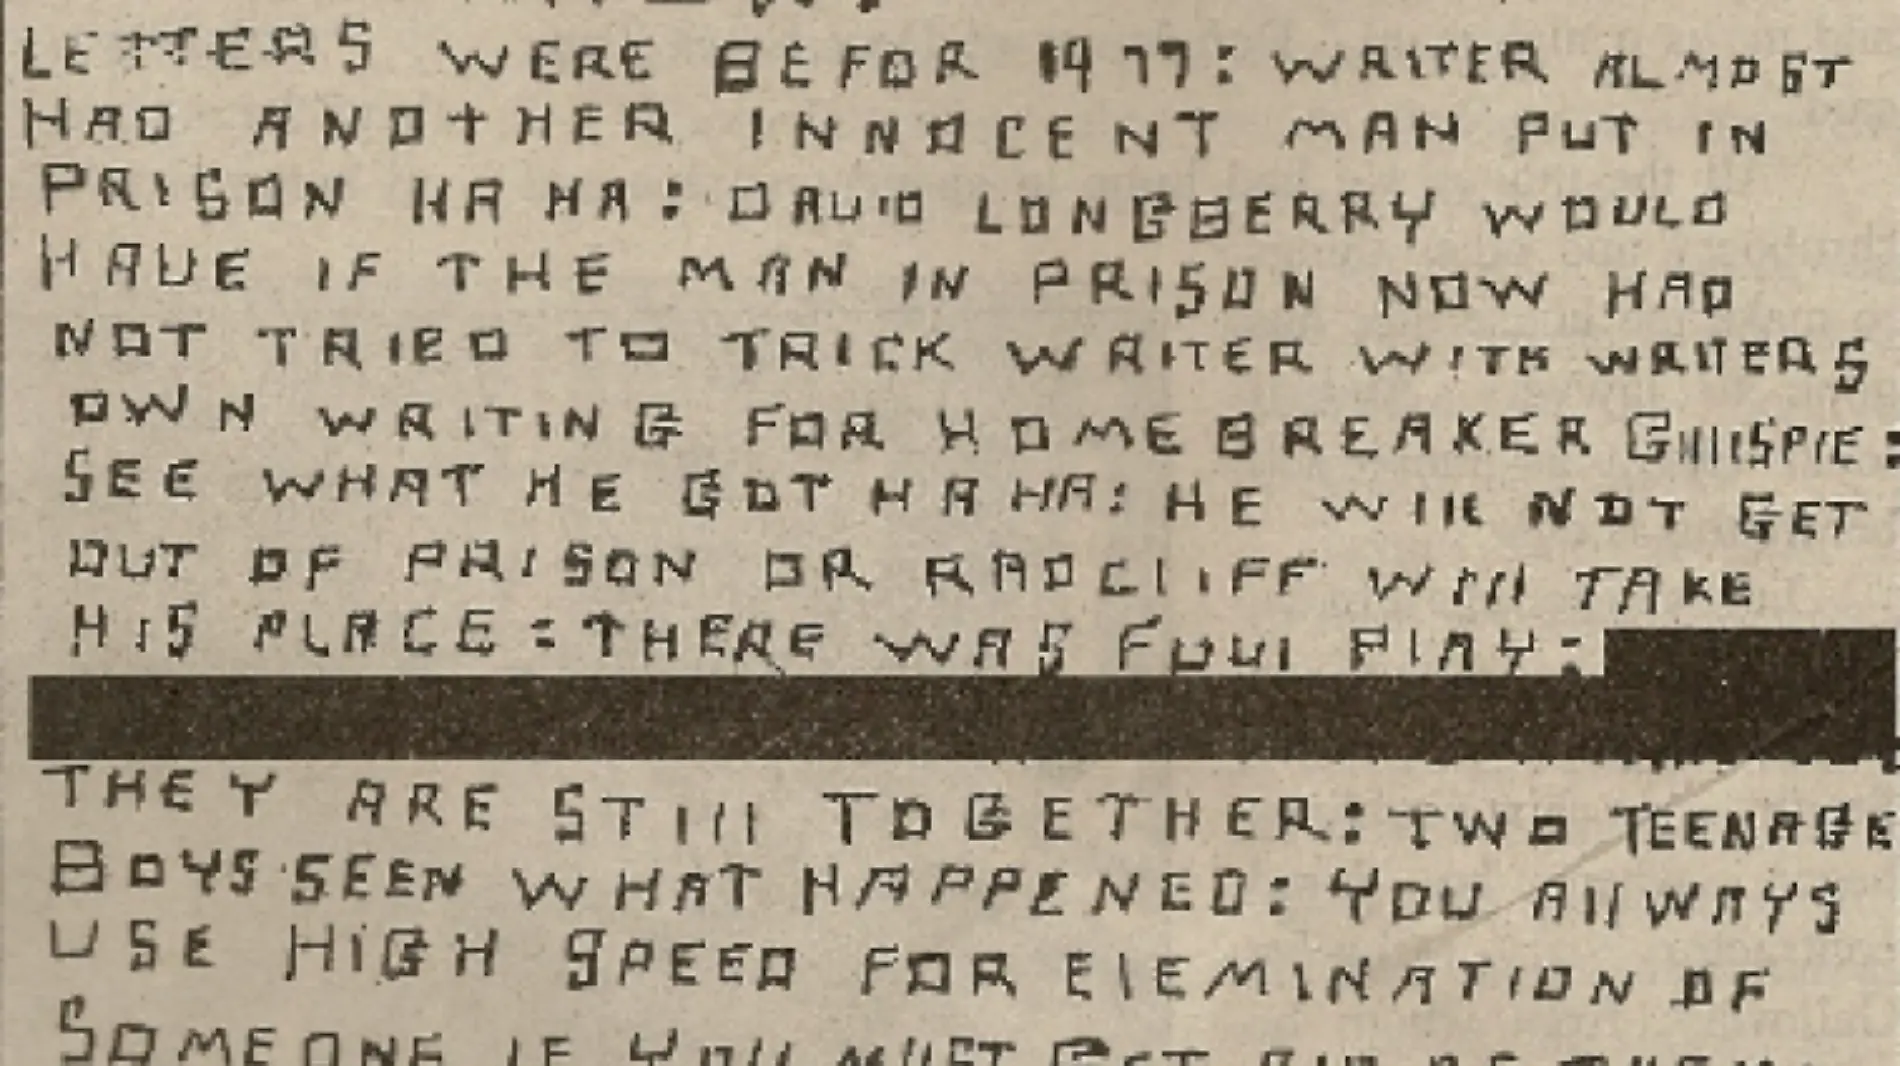 LETTERS WERE BEFOR 1977: WRITER ALMOST
HAD ANOTHER INNOCENT MAN PUT IN
PRISON HA HA: DAVID LONGBERRY WOULD
HAVE IF THE MAN IN PRISON NOW HAD
NOT TRIED TO TRICK WRITER WITH WRITERS
OWN WRITING FOR HOMEBREAKER GIllISPIE:
SEE WHAT HE GOT HA HA: HE WIll NOT GET
OUT OF PRISON OR RADClIFF WIll TAKE
HIS PLACE: THERE WAS FOUl PlAY:
THEY ARE STIll TOGETHER: TWO TEENAGE
BOYS SEEN WHAT HAPPENED: YOU AllWAYS
USE HIGH SPEED FOR ElEMINATION OF
SOMEONE IF YOU MUST GET RID OF THEM: